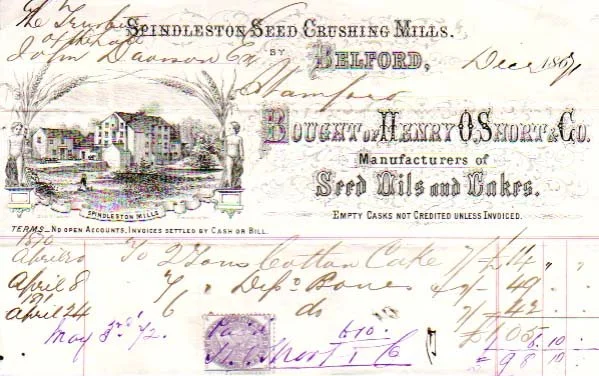 SPINDLESTON SEED CRUSHING MILLS.
The Trustees
of the late
John Dawson Esq
BY BELFORD, Dec 1871
Stamford
BOUGHT OF HENRY O. SHORT & CO.
Manufacturers of
Seed Oils and Cakes.
SPINDLESTON MILLS
EMPTY CASKS NOT CREDITED UNLESS INVOICED.
TERMS—NO OPEN ACCOUNTS, INVOICES SETTLED BY CASH OR BILL.
1870
April 20 To 2 Tons Cotton Cake 7/- £14 " "
April 8 7 " Diss. Bones 49 " "
/71
April 24 6 " do 7/- 42 " "
£105 " "
May 3rd /72 Paid 6.10 6.10
H. O. Short & Co £98 10